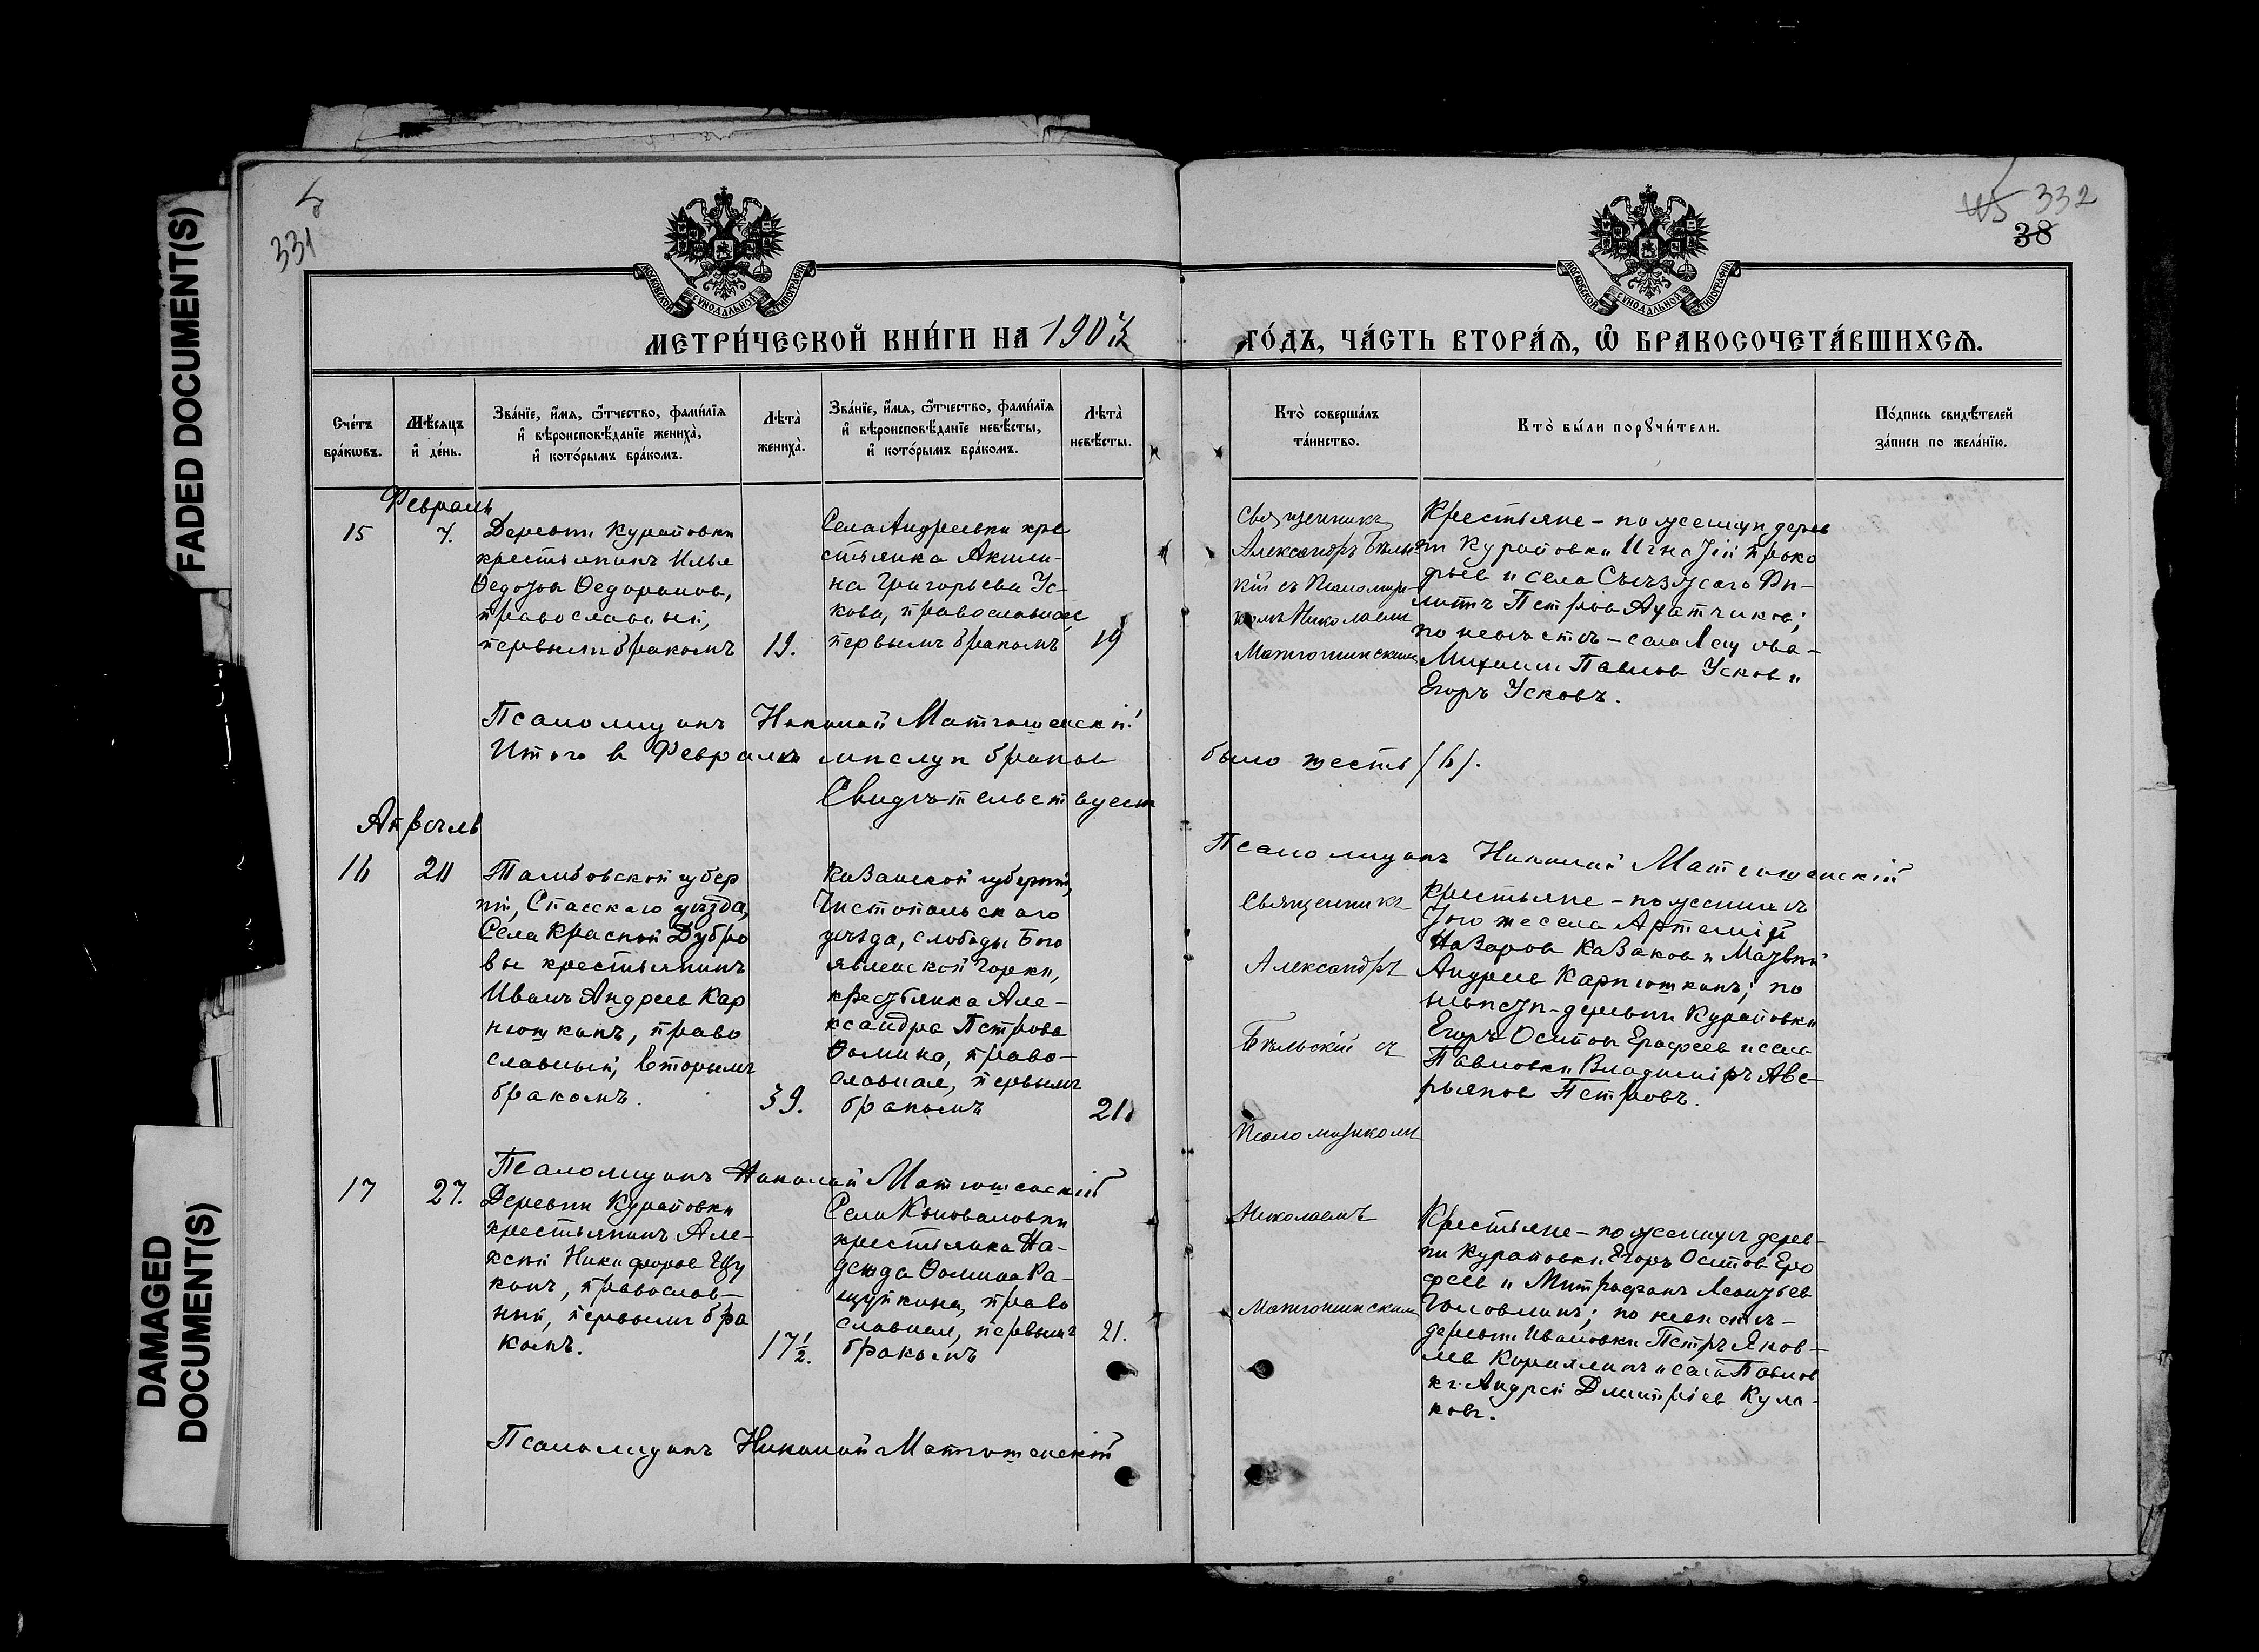 FADED DOCUMENT(S)
DAMAGED
DOCUMENT(S)
331
332
38
МОСКОВСКОЙ СѴНОДАЛЬНОЙ ТИПОГРАФІИ
МОСКОВСКОЙ СѴНОДАЛЬНОЙ ТИПОГРАФІИ
МЕТРИ́ЧЕСКОЙ КНИ́ГИ НА 1903
ГО́ДЪ, ЧА́СТЬ ВТОРА́Ѧ, Ѽ БРАКОСОЧЕТА́ВШИХСѦ.
Сче́тъ
бра́кѡвъ.
Мѣ́сѧцъ
и҆ де́нь.
Зва́нїе, и҆́мѧ, ѻ҆́тчество, фами́лїѧ
и҆ вѣроисповѣ́данїе жениха̀,
и҆ кото́рымъ бра́комъ.
Лѣта̀
жениха̀.
Зва́нїе, и҆́мѧ, ѻ҆́тчество, фами́лїѧ
и҆ вѣроисповѣ́данїе невѣ́сты,
и҆ кото́рымъ бра́комъ.
Лѣта̀
невѣ́сты.
Кто̀ соверша́лъ
та́инство.
Кто̀ бы́ли порꙋчи́тели.
По́дпись свидѣ́телей
за́писи по жела́нїю.
Февраль
15
7.
Деревни Куратовки
крестьянинъ Илья
Ѳедотов Ѳедоранов,
православный,
первымъ бракомъ
19.
Села Андреевки кре
стьянка Акили-
на Григорьева Ус-
кова, православная
первымъ бракомъ
19
Священникъ
Александръ Бѣль
кій съ Псаломщи-
комъ Николаемъ
Матюшинскимъ
Крестьяне - по женихѣ дерев
ни Куратовки Игнатій Проко
фьев и села
Петров
по невѣстѣ - села
Михаил Павлов Усков и
Егоръ Усковъ.
Псаломщикъ Николай Матюшенскій
Итого в Февралѣ мѣсяцѣ браков
было шесть (6).
Свидѣтельствует
Псаломщикъ Николай Матюшенскій
Апрѣль
16
20
Тамбовской губер
ніи, Спасскаго уѣзда,
Села Красной Дубро
вы крестьянинъ
Иванъ Андреев Кар
пюшкинъ, право
славный, вторымъ
бракомъ.
39.
Казанской губерніи,
Чистопольскаго
уѣзда, слободы Бого
явленской Горки,
крестьянка Але-
ксандра Петрова
Ѳомина, право-
славная, первымъ
бракомъ
21.
Священникъ
Александръ
Бѣльскій съ
Псаломщикомъ
Николаемъ
Матюшинскимъ
Крестьяне - по женихѣ
того же села Артемій
Назаров Казаков и Матвѣй
Андреев Карпюшкинъ; по
невѣстѣ - деревни Куратовки
Егоръ Осипов Ерофеев и села
Павловки Владиміръ Аве-
рьянов Петровъ.
Псаломщикъ Николай Матюшенскій
17
27.
Деревни Куратовки
крестьянинъ Але-
ксѣй Никифоров Щу
кинъ, православ-
ный, первымъ бра
комъ.
17½.
Села Коноваловки
крестьянка На-
дежда Ѳомина Ра-
щупкина, право
славная, первымъ
бракомъ
21.
Крестьяне - по женихѣ дерев-
ни Куратовки Егоръ Осипов Еро
феев и Митрофанъ Леонтьев
Головлинъ; по невѣстѣ -
деревни Ивановки Петръ Яков-
лев Кириллинъ и села Павлов
ки Андрей Дмитріев Кула-
ковъ.
Псаломщикъ Николай Матюшенскій